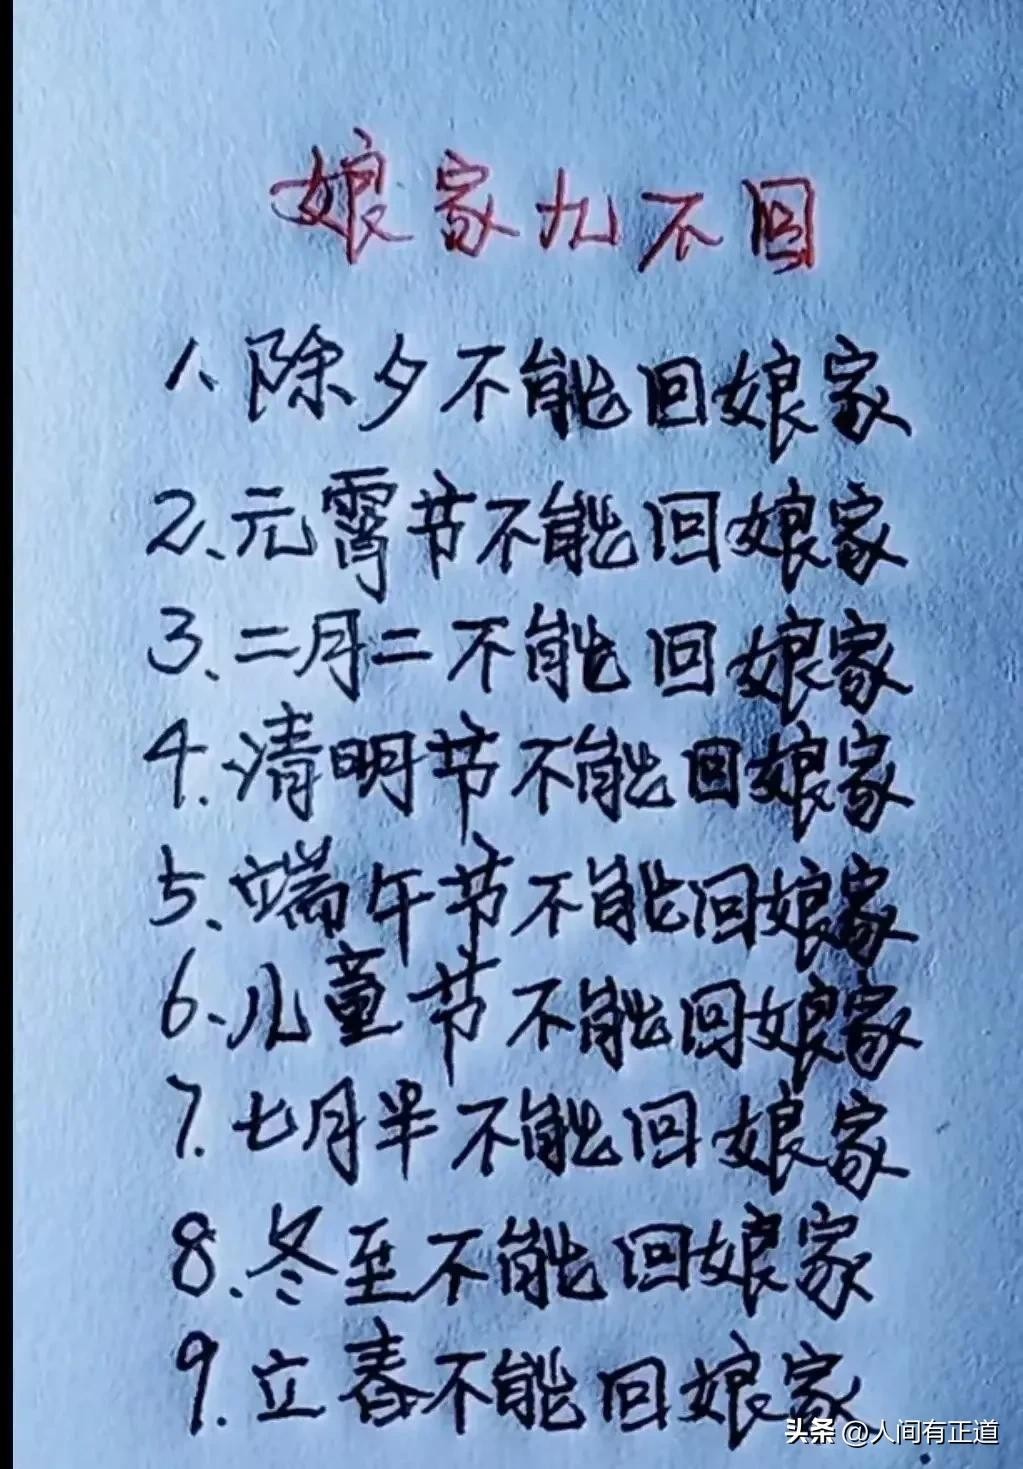 娘家九不回
1、除夕不能回娘家
2、元霄节不能回娘家
3、二月二不能回娘家
4、清明节不能回娘家
5、端午节不能回娘家
6、儿童节不能回娘家
7、七月半不能回娘家
8、冬至不能回娘家
9、立春不能回娘家
头条 @人间有正道